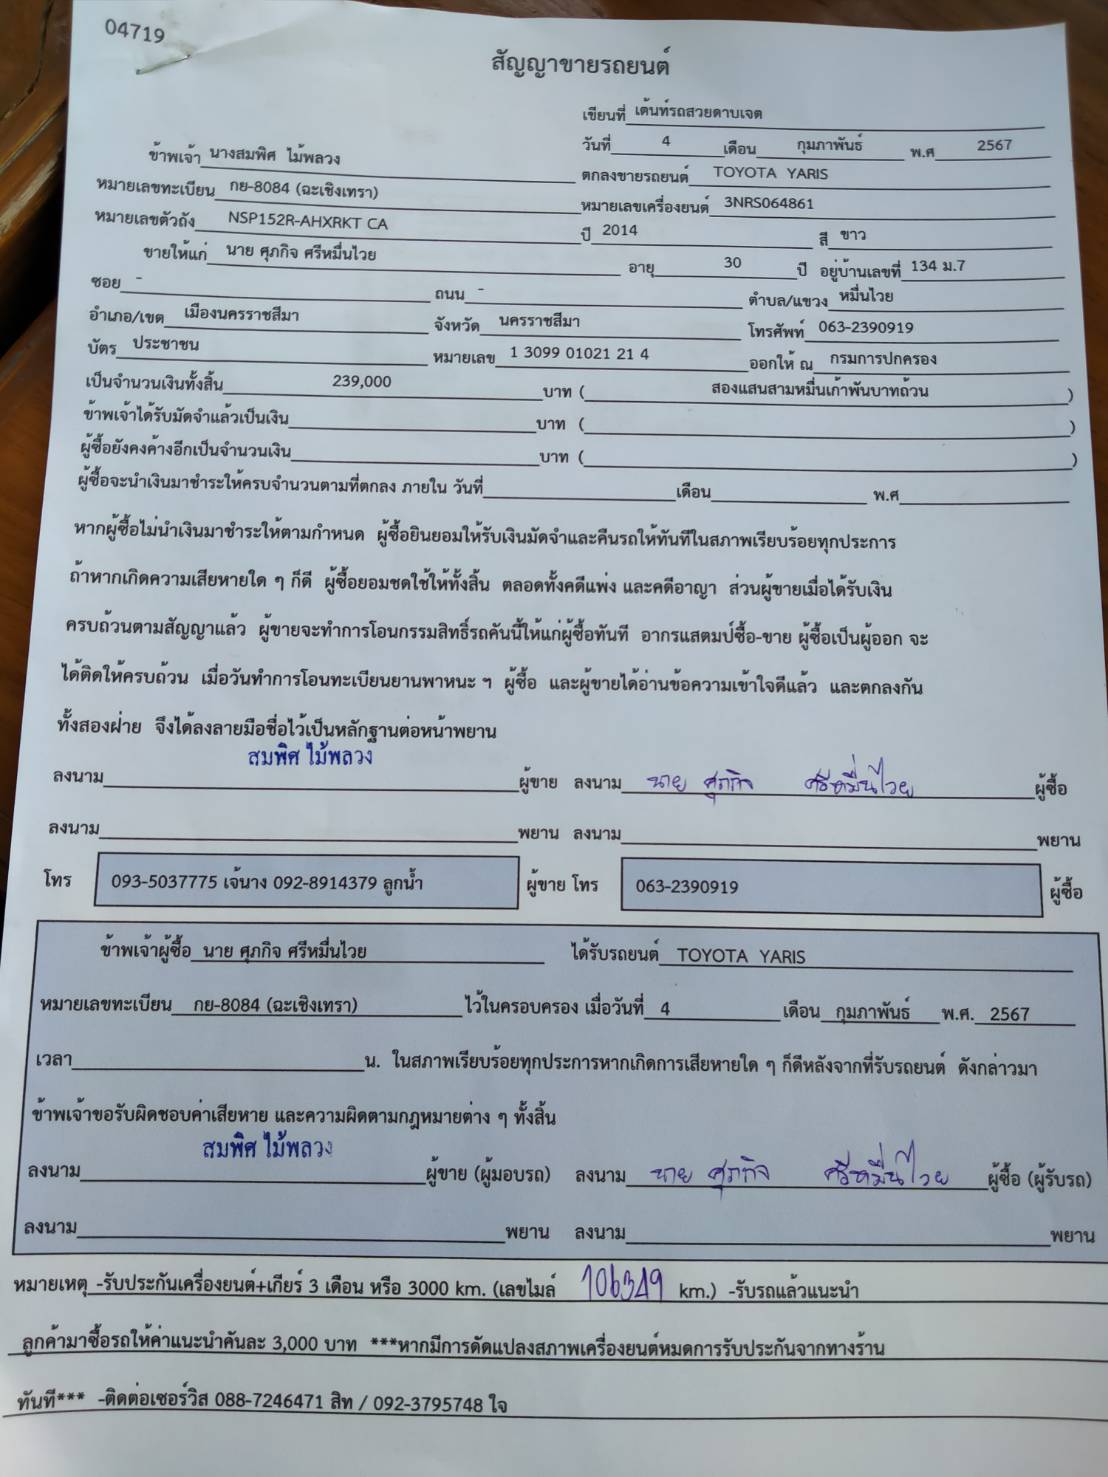 04719
สัญญาขายรถยนต์
เขียนที่ เต้นท์รถสวยดาบเจต
วันที่ 4 เดือน กุมภาพันธ์ พ.ศ 2567
ข้าพเจ้า นางสมพิศ ไม้พลวง ตกลงขายรถยนต์ TOYOTA YARIS
หมายเลขทะเบียน กย-8084 (ฉะเชิงเทรา) หมายเลขเครื่องยนต์ 3NRS064861
หมายเลขตัวถัง NSP152R-AHXRKT CA ปี 2014 สี ขาว
ขายให้แก่ นาย ศุภกิจ ศรีหมื่นไวย อายุ 30 ปี อยู่บ้านเลขที่ 134 ม.7
ซอย - ถนน - ตำบล/แขวง หมื่นไวย
อำเภอ/เขต เมืองนครราชสีมา จังหวัด นครราชสีมา โทรศัพท์ 063-2390919
บัตร ประชาชน หมายเลข 1 3099 01021 21 4 ออกให้ ณ กรมการปกครอง
เป็นจำนวนเงินทั้งสิ้น 239,000 บาท ( สองแสนสามหมื่นเก้าพันบาทถ้วน )
ข้าพเจ้าได้รับมัดจำแล้วเป็นเงิน บาท ( )
ผู้ซื้อยังคงค้างอีกเป็นจำนวนเงิน บาท ( )
ผู้ซื้อจะนำเงินมาชำระให้ครบจำนวนตามที่ตกลง ภายใน วันที่ เดือน พ.ศ
หากผู้ซื้อไม่นำเงินมาชำระให้ตามกำหนด ผู้ซื้อยินยอมให้รับเงินมัดจำและคืนรถให้ทันทีในสภาพเรียบร้อยทุกประการ
ถ้าหากเกิดความเสียหายใด ๆ ก็ดี ผู้ซื้อยอมชดใช้ให้ทั้งสิ้น ตลอดทั้งคดีแพ่ง และคดีอาญา ส่วนผู้ขายเมื่อได้รับเงิน
ครบถ้วนตามสัญญาแล้ว ผู้ขายจะทำการโอนกรรมสิทธิ์รถคันนี้ให้แก่ผู้ซื้อทันที อากรแสตมป์ซื้อ-ขาย ผู้ซื้อเป็นผู้ออก จะ
ได้ติดให้ครบถ้วน เมื่อวันทำการโอนทะเบียนยานพาหนะ ฯ ผู้ซื้อ และผู้ขายได้อ่านข้อความเข้าใจดีแล้ว และตกลงกัน
ทั้งสองฝ่าย จึงได้ลงลายมือชื่อไว้เป็นหลักฐานต่อหน้าพยาน
ลงนาม สมพิศ ไม้พลวง ผู้ขาย ลงนาม นาย ศุภกิจ ศรีหมื่นไวย ผู้ซื้อ
ลงนาม พยาน ลงนาม พยาน
โทร 093-5037775 เจ้นาง 092-8914379 ลูกน้ำ ผู้ขาย โทร 063-2390919 ผู้ซื้อ
ข้าพเจ้าผู้ซื้อ นาย ศุภกิจ ศรีหมื่นไวย ได้รับรถยนต์ TOYOTA YARIS
หมายเลขทะเบียน กย-8084 (ฉะเชิงเทรา) ไว้ในครอบครอง เมื่อวันที่ 4 เดือน กุมภาพันธ์ พ.ศ. 2567
เวลา น. ในสภาพเรียบร้อยทุกประการหากเกิดการเสียหายใด ๆ ก็ดีหลังจากที่รับรถยนต์ ดังกล่าวมา
ข้าพเจ้าขอรับผิดชอบค่าเสียหาย และความผิดตามกฎหมายต่าง ๆ ทั้งสิ้น
ลงนาม สมพิศ ไม้พลวง ผู้ขาย (ผู้มอบรถ) ลงนาม นาย ศุภกิจ ศรีหมื่นไวย ผู้ซื้อ (ผู้รับรถ)
ลงนาม พยาน ลงนาม พยาน
หมายเหตุ -รับประกันเครื่องยนต์+เกียร์ 3 เดือน หรือ 3000 km. (เลขไมล์ 106349 km.) -รับรถแล้วแนะนำ
ลูกค้ามาซื้อรถให้ค่าแนะนำคันละ 3,000 บาท ***หากมีการดัดแปลงสภาพเครื่องยนต์หมดการรับประกันจากทางร้าน
ทันที*** -ติดต่อเซอร์วิส 088-7246471 สิท / 092-3795748 ใจ